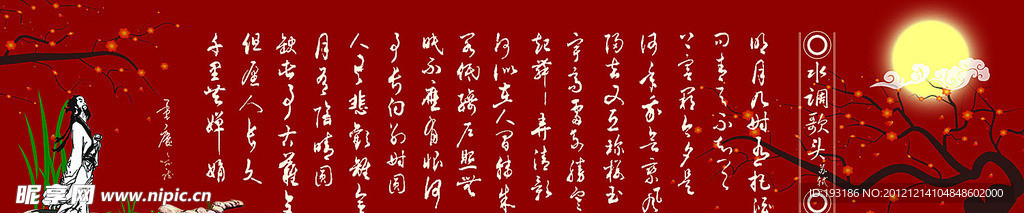 水调歌头
苏轼
明月几时有把酒
问青天不知天
上宫阙今夕是
何年我欲乘风
归去又恐琼楼玉
宇高处不胜寒
起舞弄清影
何似在人间转朱
阁低绮户照无
眠不应有恨何
事长向别时圆
人有悲欢离合
月有阴晴圆
缺此事古难全
但愿人长久
千里共婵娟
昵享网 www.nipic.cn
ID:193186 NO:20121214104848602000